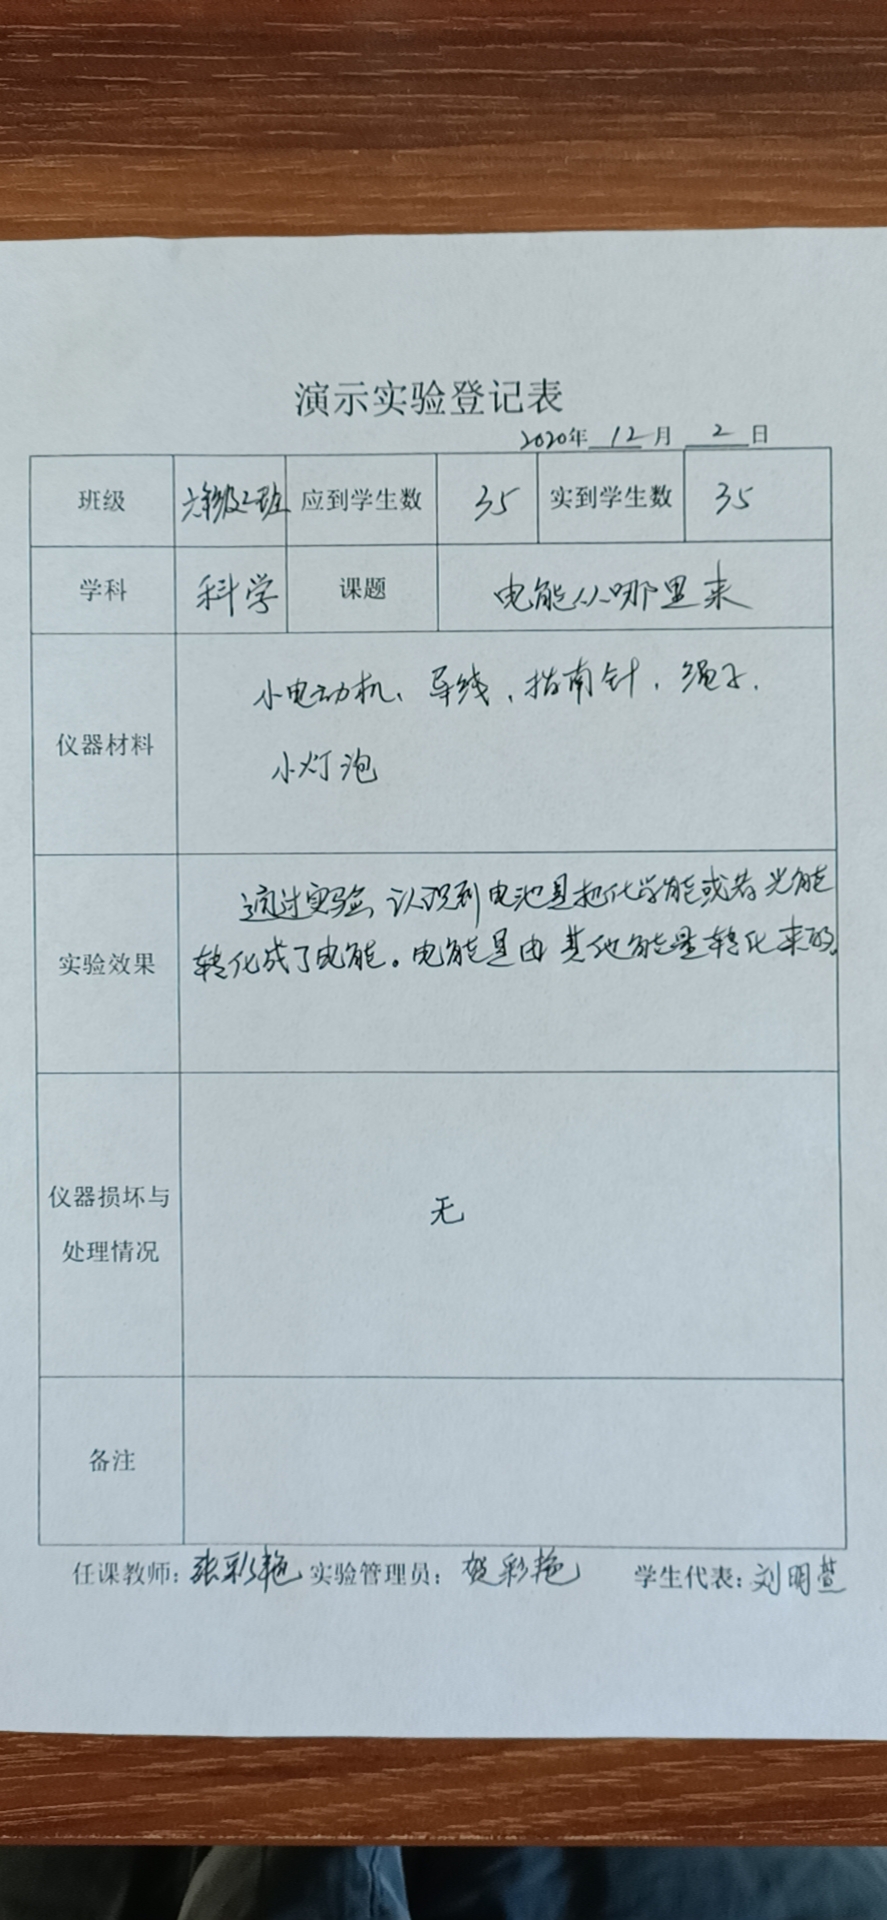 演示实验登记表
2020年 12 月 2 日
班级 六年级2班 应到学生数 35 实到学生数 35
学科 科学 课题 电能从哪里来
仪器材料
小电动机、导线、指南针、绳子、
小灯泡
实验效果
通过实验,认识到电池是把化学能或者光能
转化成了电能。电能是由其他能量转化来的。
仪器损坏与
处理情况
无
备注
任课教师:张彩艳 实验管理员:贺彩艳 学生代表:刘明萱